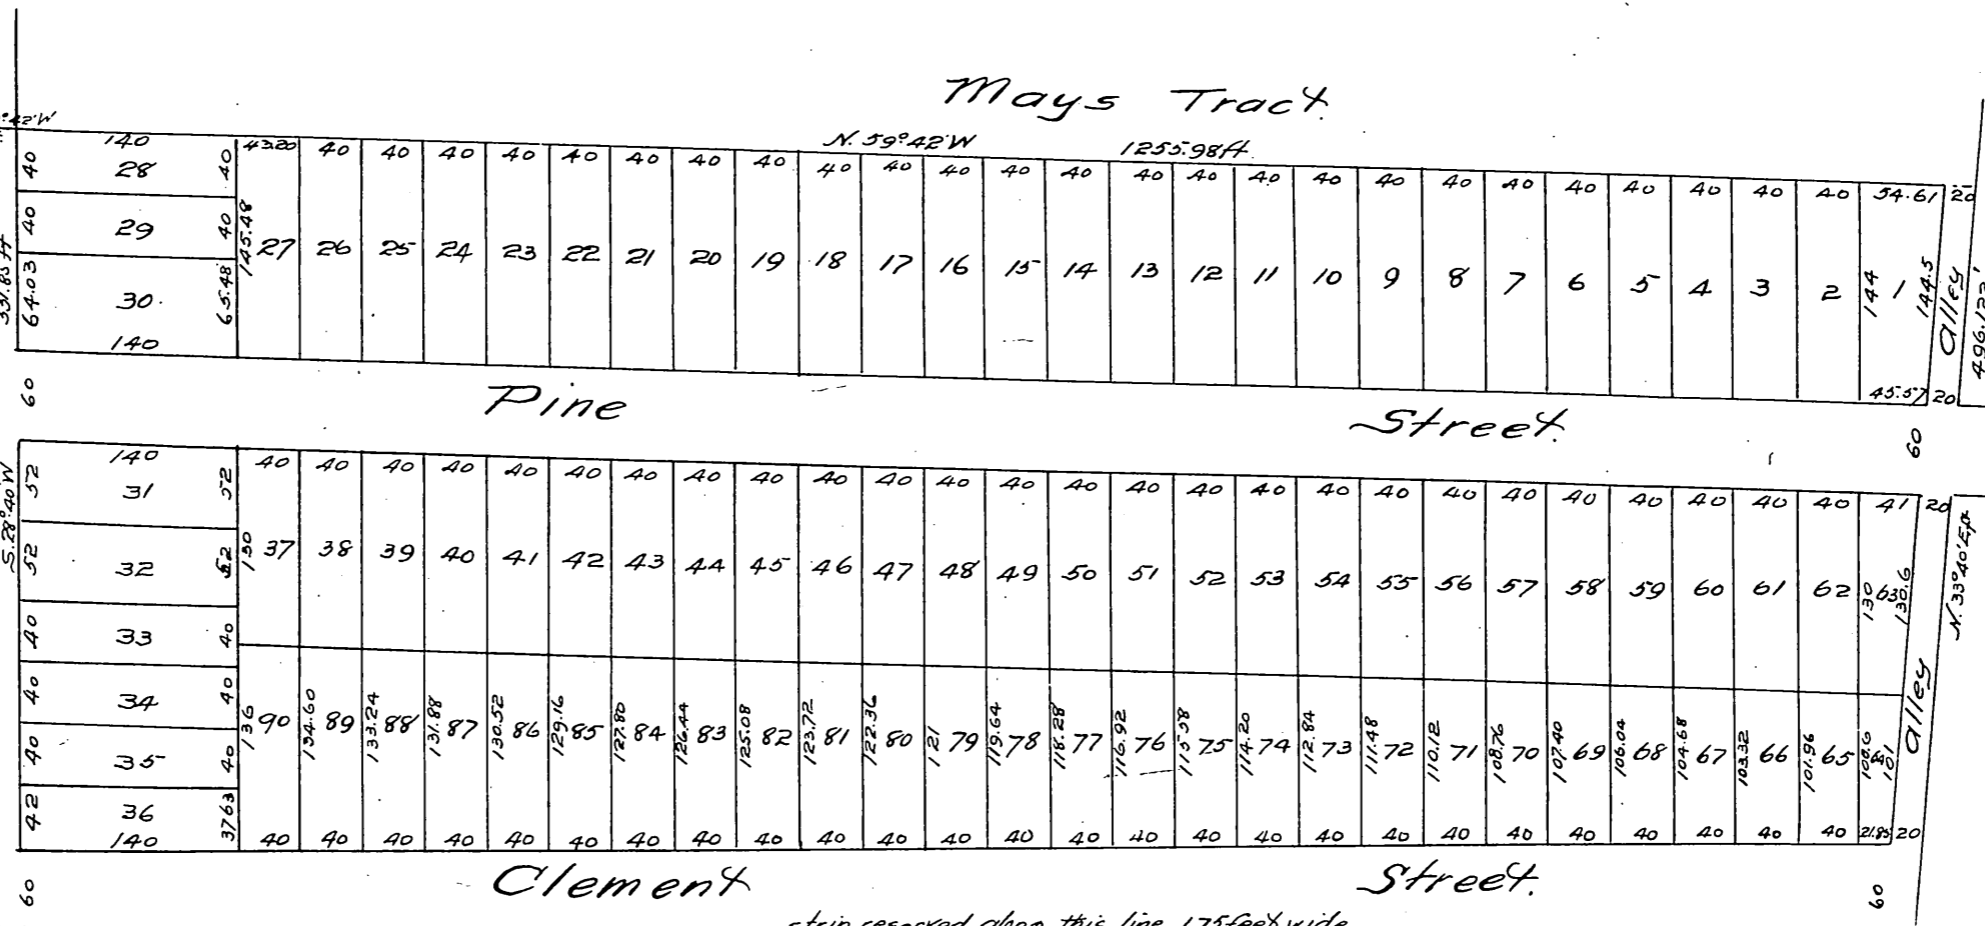 Mays Tract.
N. 59° 42' W 1255.98 ft.
°42'W
140 43.20 40 40 40 40 40 40 40 40 40 40 40 40 40 40 40 40 40 40 40 40 40 40 40 40 40 54.61 20
40 28 40
40 29 40 145.48
27 26 25 24 23 22 21 20 19 18 17 16 15 14 13 12 11 10 9 8 7 6 5 4 3 2 144 1 144.5 Alley 496.122'
331.85 ft
64.03 30. 65.48
140
45.57 20
60 Pine Street. 60
S. 28° 40' W
140 40 40 40 40 40 40 40 40 40 40 40 40 40 40 40 40 40 40 40 40 40 40 40 40 40 40 41 20
52 31 52
52 32 52 130 37 38 39 40 41 42 43 44 45 46 47 48 49 50 51 52 53 54 55 56 57 58 59 60 61 62 130 63 130.6
N. 33° 40' E
40 33 40
40 34 40
136 90 134.60 89 133.24 88 131.88 87 130.52 86 129.16 85 127.80 84 126.44 83 125.08 82 123.72 81 122.36 80 121 79 119.64 78 118.28 77 116.92 76 115.58 75 114.20 74 112.84 73 111.48 72 110.12 71 108.76 70 107.40 69 106.04 68 104.68 67 103.32 66 101.96 65 100.6 101 Alley
40 35 40
42 36 37.63
140 40 40 40 40 40 40 40 40 40 40 40 40 40 40 40 40 40 40 40 40 40 40 40 40 40 40 21.85 20
60 Clement Street. 60
strip reserved along this line 1.75 feet wide